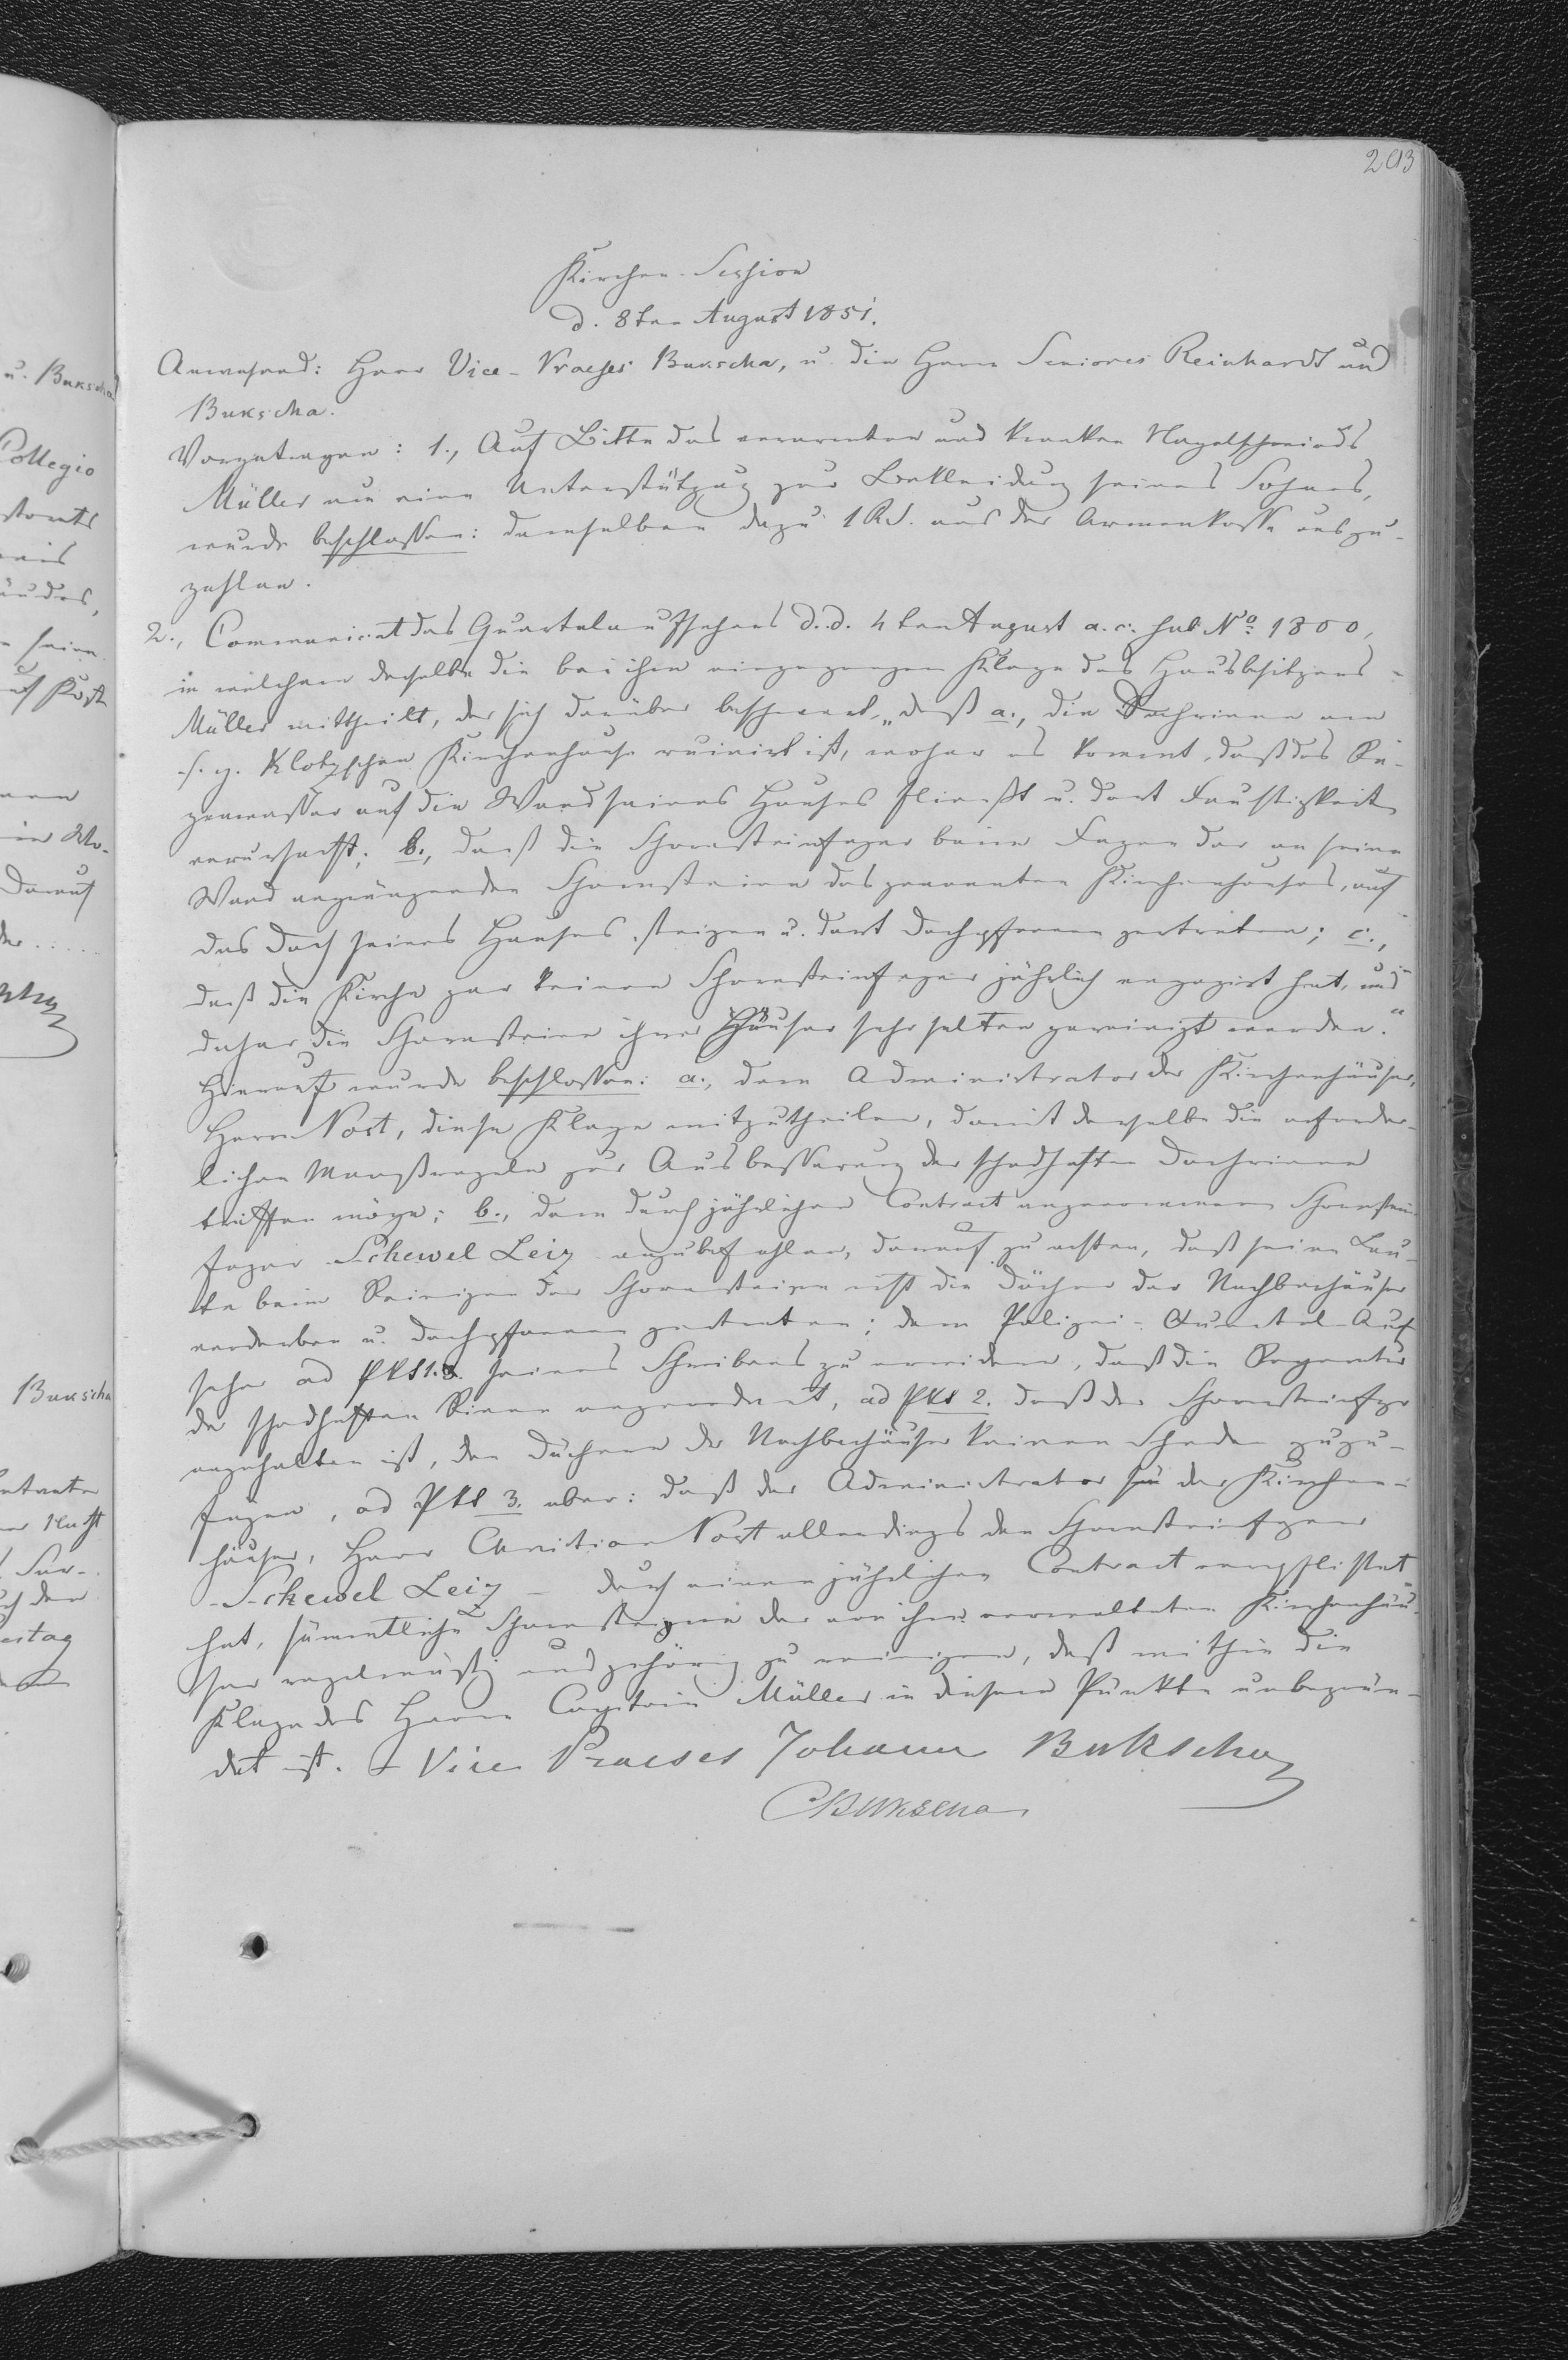 293
Kirchen-Session
d. 8ten August 1851.
Anwesend: Herr Vice-Praeses Bukscha, u. die Herrn Seniores Reinhardt und
Bukscha.
Vorgetragen: 1., Auf Bitte des verarmten und kranken Nagelschmieds
Müller um eine Unterstützung zur Bekleidung seines Sohnes,
wurde beschlossen: demselben dazu 1 RS. aus der Armenkasse auszu-
zahlen.
2., Communicat des Quartalaufsehers d. d. 4ten August a. c. sub No 1800,
in welchem derselbe die bei ihm eingegangene Klage des Hausbesitzers
Müller mittheilt, der sich darüber beschwert, „daß a., die Dachrinne am
s. g. Klotzschen Kirchenhause ruinirt ist, woher es kommt, daß das Re-
genwasser auf die Wand seines Hauses fließt u. dort Feuchtigkeit
verursacht; b., daß die Schornsteinfeger beim Fegen der an seine
Wand angränzenden Schornsteine des genannten Kirchenhauses, auf
das Dach seines Hauses steigen u. dort Dachpfannen zertreten; c.,
daß die Kirche gar keinen Schornsteinfeger jährlich engagirt hat, und
daher die Schornsteine ihrer Häuser sehr selten gereinigt werden.“
Hierauf wurde beschlossen: a., dem Administrator der Kirchenhäuser,
Herrn Nost, diese Klage mitzutheilen, damit derselbe die erforder-
lichen Maaßregeln zur Ausbesserung der schadhaften Dachrinne
treffen möge; b., dem durch jährlichen Contract angenommenen Schornstein-
feger Schewel Leiz anzubefehlen, darauf zu achten, daß seine Leu-
te beim Reinigen der Schornsteine nicht die Dächer der Nachbarhäuser
verderben u. Dachpfannen zertreten; dem Polizei-Quartal-Auf
seher ad Pkt 1. seines Schreibens zu erwidern, daß die Reparatur
der schadhaften Rinne angeordnet, ad Pkt 2. daß der Schornsteinfeger
angehalten ist, den Dächern der Nachbarhäuser keinen Schaden zuzu-
fügen, ad Pkt 3. aber: daß der Administrator der Kirchen-
häuser, Herr Christian Nost allerdings den Schornsteinfeger
Schewel Leiz – durch einen jährlichen Contract verpflichtet
hat, sämmtliche Schornsteine der von ihm verwalteten Kirchenhäu-
ser regelmäßig und gehörig zu reinigen, daß mithin die
Klage des Herrn Capitain Müller in diesem Punkte unbegrün-
det ist. Vice Praeses Johann Bukscha
CBukscha